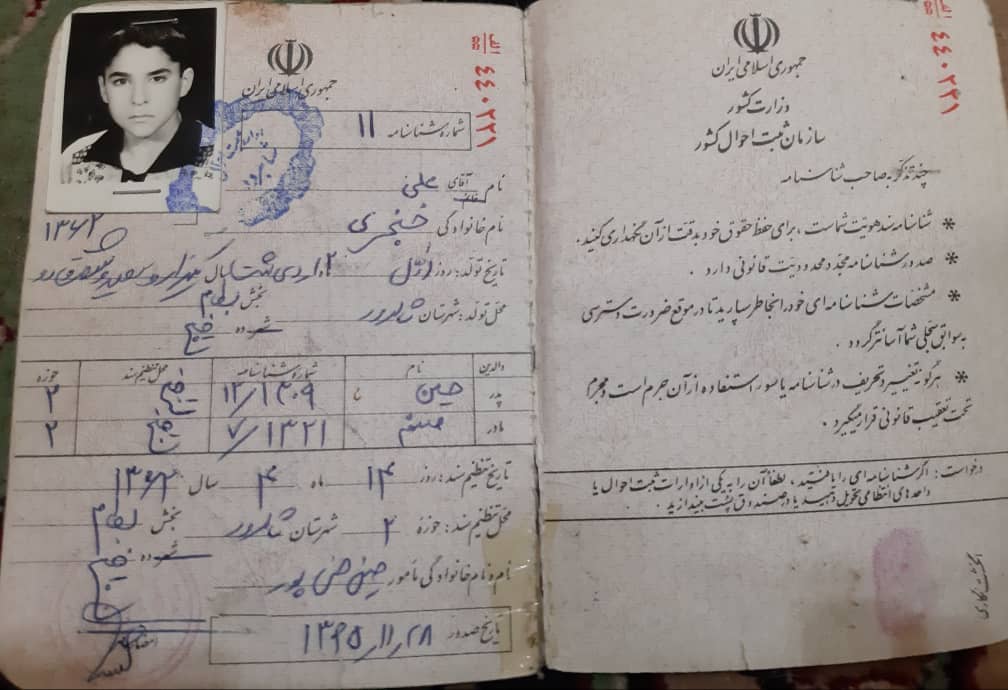 جمهوری اسلامی ایران
الف ۵۵ ۴۴۰۲۲۱
شماره شناسنامه ۱۱
نام آقای علی
نام خانوادگی خنجری
تاریخ تولد: روز اول ماه اردیبهشت سال یکهزار و سیصد و شصت و دو ۱۳۶۲
محل تولد: شهرستان شاهرود بخش بسطام
شهر ده
والدین نام شماره شناسنامه محل تنظیم سند حوزه
پدر حسین ۱۲/۱۳۰۹ ۲
مادر ۷/۱۳۲۱ ۲
تاریخ تنظیم سند: روز ۱۴ ماه ۴ سال ۱۳۶۲
محل تنظیم سند: حوزه ۲ شهرستان شاهرود بخش بسطام
شهر ده
نام و نام خانوادگی مأمور
تاریخ صدور ۱۳۷۵/۱۱/۲۸
امضاء
الف ۵۵ ۴۴۰۲۲۱
جمهوری اسلامی ایران
وزارت کشور
سازمان ثبت احوال کشور
چند تذکر به صاحب شناسنامه
* شناسنامه سند هویت شماست ، برای حفظ حقوق خود بدقت از آن نگهداری کنید .
* صدور شناسنامه مجدد محدودیت قانونی دارد .
* مشخصات شناسنامه ای خود را بخاطر بسپارید تا در موقع ضرورت دسترسی
به سوابق سجلی شما آسانتر گردد .
* هرگونه تغییر و تحریف در شناسنامه یا سوء استفاده از آن جرم است و مجرم
تحت تعقیب قانونی قرار میگیرد .
درخواست : اگر شناسنامه ای را یافتید ، لطفاً آن را به یکی از ادارات ثبت احوال یا
واحدهای انتظامی تحویل دهید یا در صندوق پست بیندازید .
انگشت نگاری